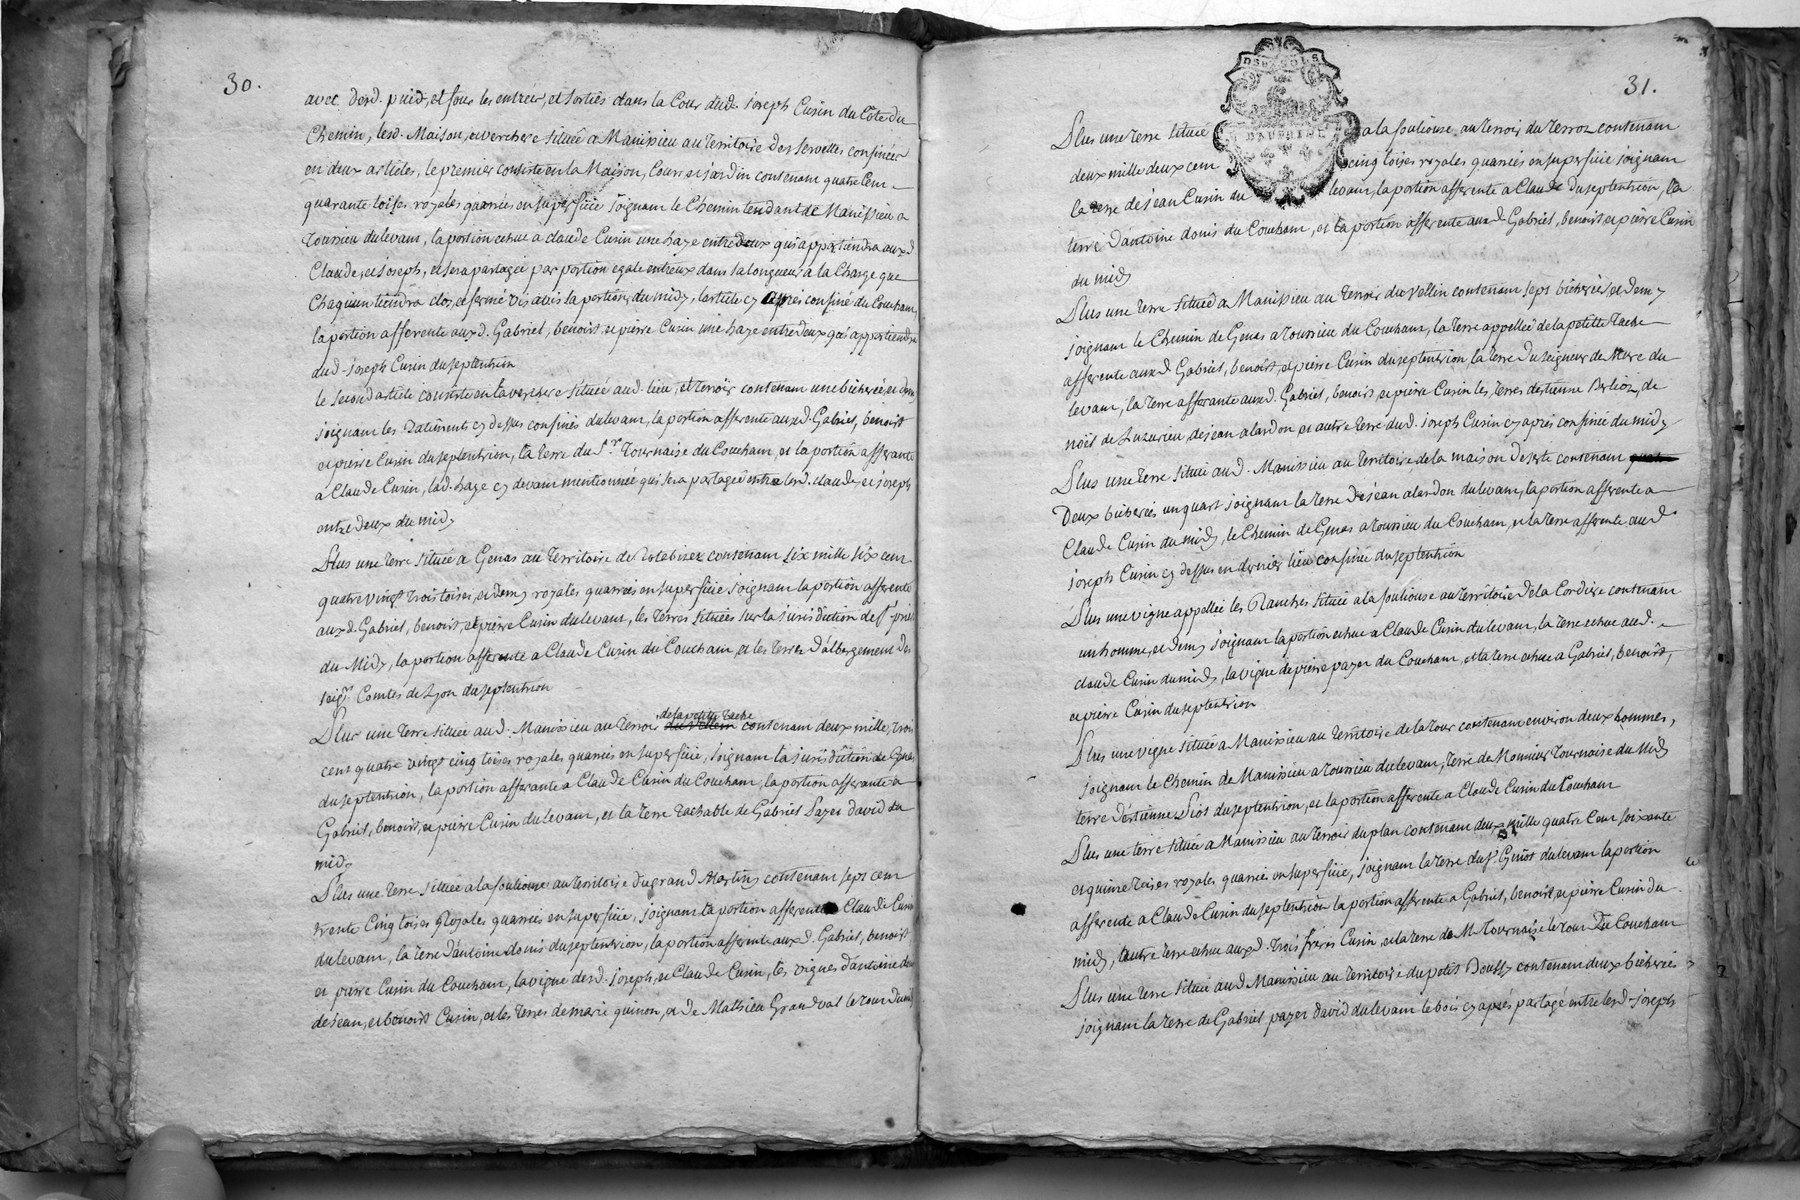 30.
avec desd. puid, et sous les entrées, et sorties dans la Cour dud. Joseph Cusin du Côte du
Chemin, lesd. Maison, et verchere située a Manissieu au territoire des servettes confinées
en deux articles, le premier consiste en la Maison, Cours et jardin contenant quatre Cent
quarante toises royales quarrées en superficie joignant le Chemin tendant de Manissieu a
Toussieu du levant, la portion echue a claude Cusin une haye entredeux qui appartiendra auxd.
Claude, et Joseph, et sera partagée par portion egale entreux dans sa longueur a la Charge que
Chaquun tiendra clos et fermé vis avis la portion, du midy, l'article cy après confiné du Couchant,
la portion afferente auxd. Gabriel, benoist, et pierre Cusin une haye entredeux qui appartiendra
dud. Joseph Cusin du septention
le second article consiste en la verchere située aud. lieu, et terroir contenant une bicherée, et demy
joignant les Batiments cy dessus confinés du levant, la portion afferente auxd. Gabriel, benoist
et pierre Cusin du septentrion, la terre du Sr. Tournaise du Couchant, et la portion afferante
a Claude Cusin, lad. haye cy devant mentionnée qui sera partagée entre lesd. claude, et joseph
entre deux du midy
Plus une terre située a Genas au territoire de contenant six mille six cent
quatre vingt trois toises, et demy royales quarrées en superficie joignant la portion afferente
auxd. Gabriel, benoist, et pierre Cusin du levant, les terres situées sur la jurisdiction de St. priest
du Midy, la portion afferente a Claude Cusin du Couchant, et les terres d'albergement des
seigrs. Comtes de Lyon du septentrion
Plus une terre située aud. Manissieu au terroir du Vellein de la petite tache contenant deux mille, trois
cent quatre vingt cinq toises royales quarrées en superficie, joignant la jurisdiction de Genas
du septentrion, la portion afferante a Claude Cusin du Couchant, la portion afferante a
Gabriel, benoist, et pierre Cusin du levant, et la terre tachable de Gabriel Payer david du
midy
Plus une terre située a la fouliouse au territoire du grand Martin contenant sept cent
trente Cinq toises Royales quarrées en superficie, joignant la portion afferente a Claude Cusin
du levant, la terre d'antoine donis du septentrion, la portion afferente auxd. Gabriel, benoist
et pierre Cusin du Couchant, la vigne desd. joseph, et Claude Cusin, les vignes d'antoine
de jean, et benoist Cusin, et les terres de marie quinon, et de Mathieu Grandval le tour du midy
31.
DSBADOLS
DAUPHINE
Plus une terre située a la fouliouse au terroir du terroz contenant
deux mille deux cent cinq toises royales quarrées en superficie joignant
la terre de jean Cusin du levant, la portion afferente a Claude du septentrion, la
terre d'antoine donis du Couchant, et la portion afferente auxd. Gabriel, benoist et pierre Cusin
du midy
Plus une terre située a Manissieu au terroir du Vellin contenant sept bicherées, et demy
joignant le Chemin de Genas a toussieu du Couchant, la terre appellée de la petitte tache
afferente auxd. Gabriel, benoist, et pierre Cusin du septentrion la terre du seigneur de Mure du
levant, la terre afferante auxd. Gabriel, benoist, et pierre Cusin les, terres d'estienne Berlioz, de
noël de Luzurieu, de jean alardon et autre terre dud. joseph Cusin cy après confinée du midy
Plus une terre située aud. Manissieu au territoire de la maison deserte contenant
Deux bicherées un quart joignant la terre de jean alardon du levant, la portion afferente a
Claude Cusin du midy, le Chemin de Genas a toussieu du Couchant, et la terre afferente aud.
joseph Cusin cy dessus en dernier lieu confinée du septentrion
Plus une vigne appellée les Ranches située a la fouliouse au territoire de la Cordiere contenant
un homme, et demy joignant la portion echue a Claude Cusin du levant, la terre echue aud.
claude Cusin du midy, la vigne de pierre payer du Couchant, et la terre echue a Gabriel, benoist,
et pierre Cusin du septentrion
Plus une vigne située a Manissieu au territoire de la tour contenant environ deux hommes,
joignant le Chemin de Manissieu a toussieu du levant, terre de Monsieur tournaise du Midy
terre d'estienne Liot du septentrion, et la portion afferente a Claude Cusin du Couchant
Plus une terre située a Manissieu au terroir du plan contenant deux mille quatre Cent soixante
et quinze toises royales quarrées en superficie, joignant la terre du Sr. Guiot du levant la portion
afferente a Claude Cusin du septentrion la portion afferente a Gabriel, benoist et pierre Cusin du
midy, l'autre terre echue auxd. trois freres Cusin, et la terre de M. Tournaise le tour du Couchant
Plus une terre située aud. Manissieu au territoire du petit Bouffy contenant deux bicherées
joignant la terre de Gabriel payer david du levant le bois cy après partagé entre lesd. joseph